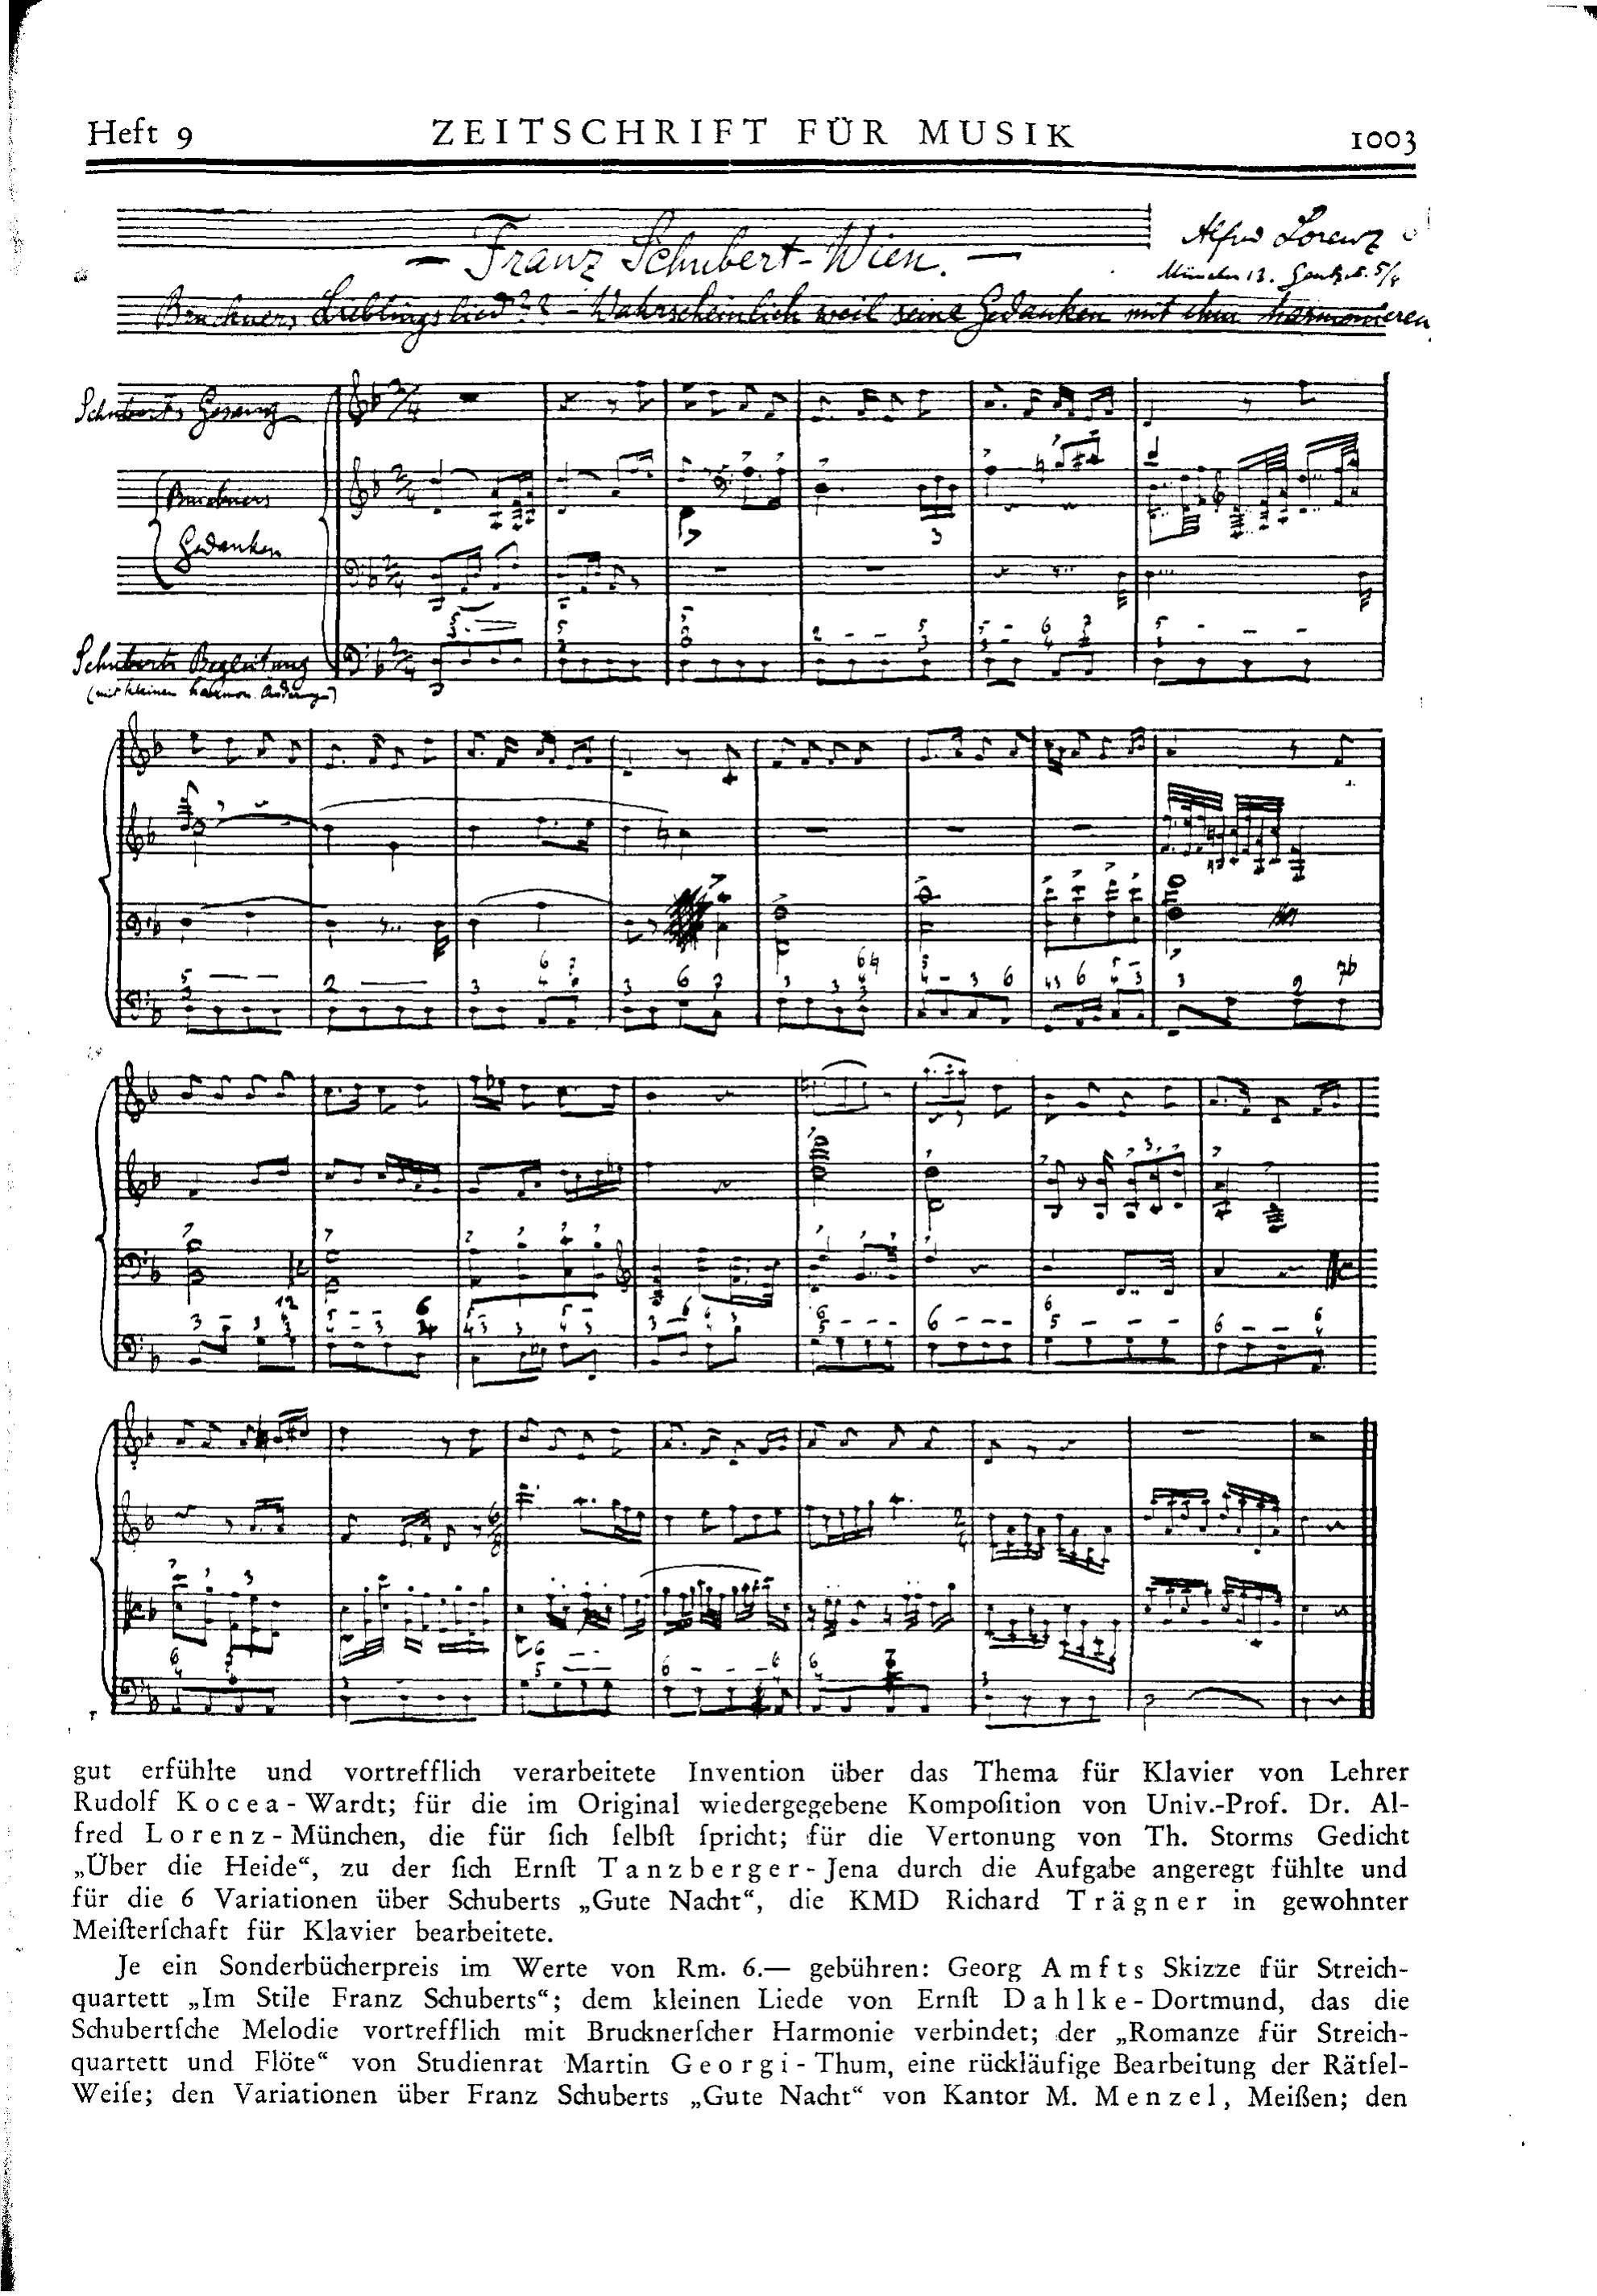 Heft 9 ZEITSCHRIFT FÜR MUSIK 1003
— Franz Schubert - Wien. —
Alfred Lorenz
München 13.
Bruckners Lieblingslied?? – Wahrscheinlich weil seine Gedanken mit ihm harmonieren
Schuberts Gesang
Bruckners
Gedanken
Schuberts Begleitung
(mit kleinen harmon. Änderung)
gut erfühlte und vortrefflich verarbeitete Invention über das Thema für Klavier von Lehrer
Rudolf Kocea-Wardt; für die im Original wiedergegebene Kompoſition von Univ.-Prof. Dr. Al-
fred Lorenz-München, die für ſich ſelbſt ſpricht; für die Vertonung von Th. Storms Gedicht
„Über die Heide“, zu der ſich Ernſt Tanzberger-Jena durch die Aufgabe angeregt fühlte und
für die 6 Variationen über Schuberts „Gute Nacht“, die KMD Richard Trägner in gewohnter
Meiſterſchaft für Klavier bearbeitete.
Je ein Sonderbücherpreis im Werte von Rm. 6.— gebühren: Georg Amfts Skizze für Streich-
quartett „Im Stile Franz Schuberts“; dem kleinen Liede von Ernſt Dahlke-Dortmund, das die
Schubertſche Melodie vortrefflich mit Bruckneſcher Harmonie verbindet; der „Romanze für Streich-
quartett und Flöte“ von Studienrat Martin Georgi-Thum, eine rückläufige Bearbeitung der Rätſel-
Weiſe; den Variationen über Franz Schuberts „Gute Nacht“ von Kantor M. Menzel, Meißen; den